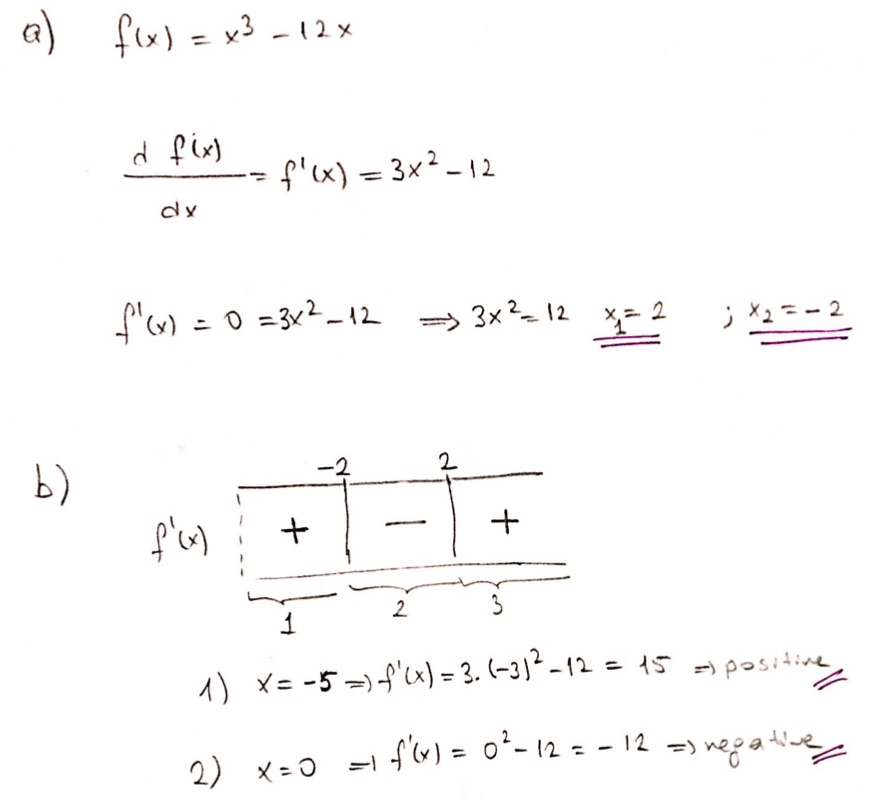 a) f(x) = x³ - 12x
d f(x) / dx = f'(x) = 3x² - 12
f'(x) = 0 = 3x² - 12 ⟹ 3x² = 12 x₁ = 2 ; x₂ = -2
b)
-2 2
f'(x) + − +
1 2 3
1) x = -5 ⇒ f'(x) = 3.(-3)² - 12 = 15 ⇒ positive
2) x = 0 ⇒ f'(x) = 0² - 12 = -12 ⇒ negative